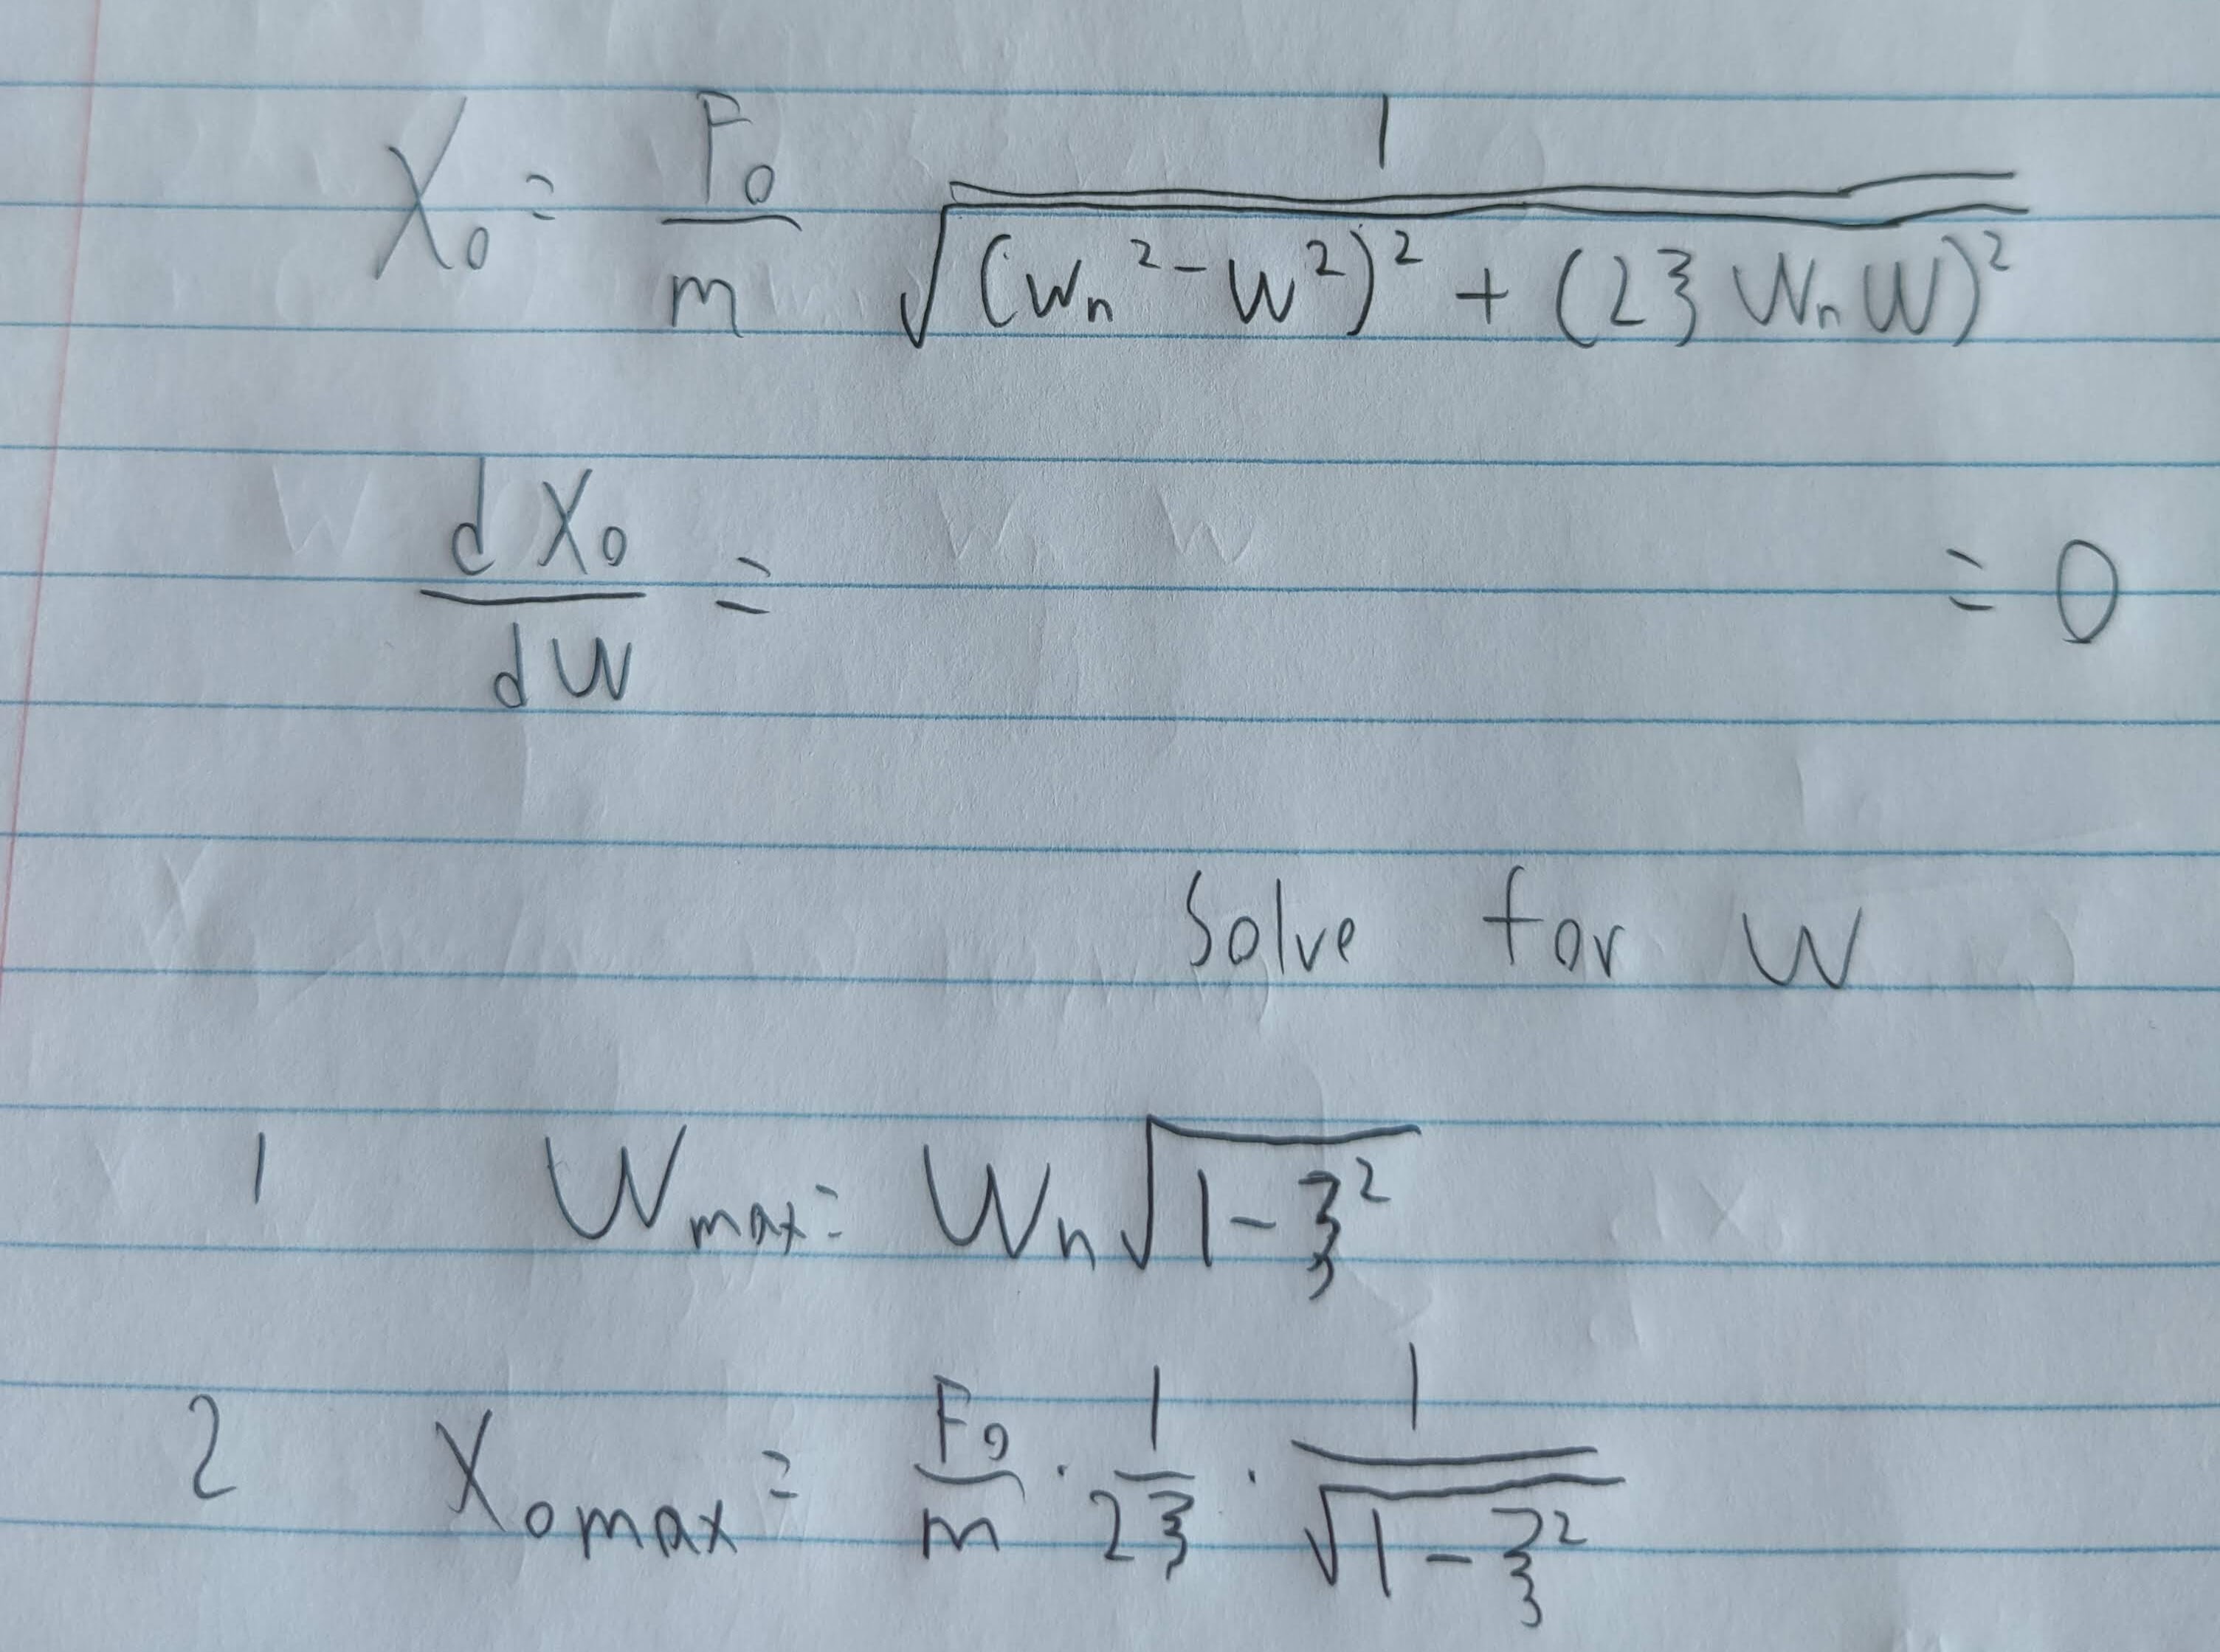 X₀ = F₀/m 1/√((Wₙ² - W²)² + (2ξ Wₙ W)²)
dX₀/dW = = 0
Solve for W
1 Wmax = Wₙ√(1 - ξ²)
2 X₀max = F₀/m · 1/2ξ · 1/√(1 - ξ²)